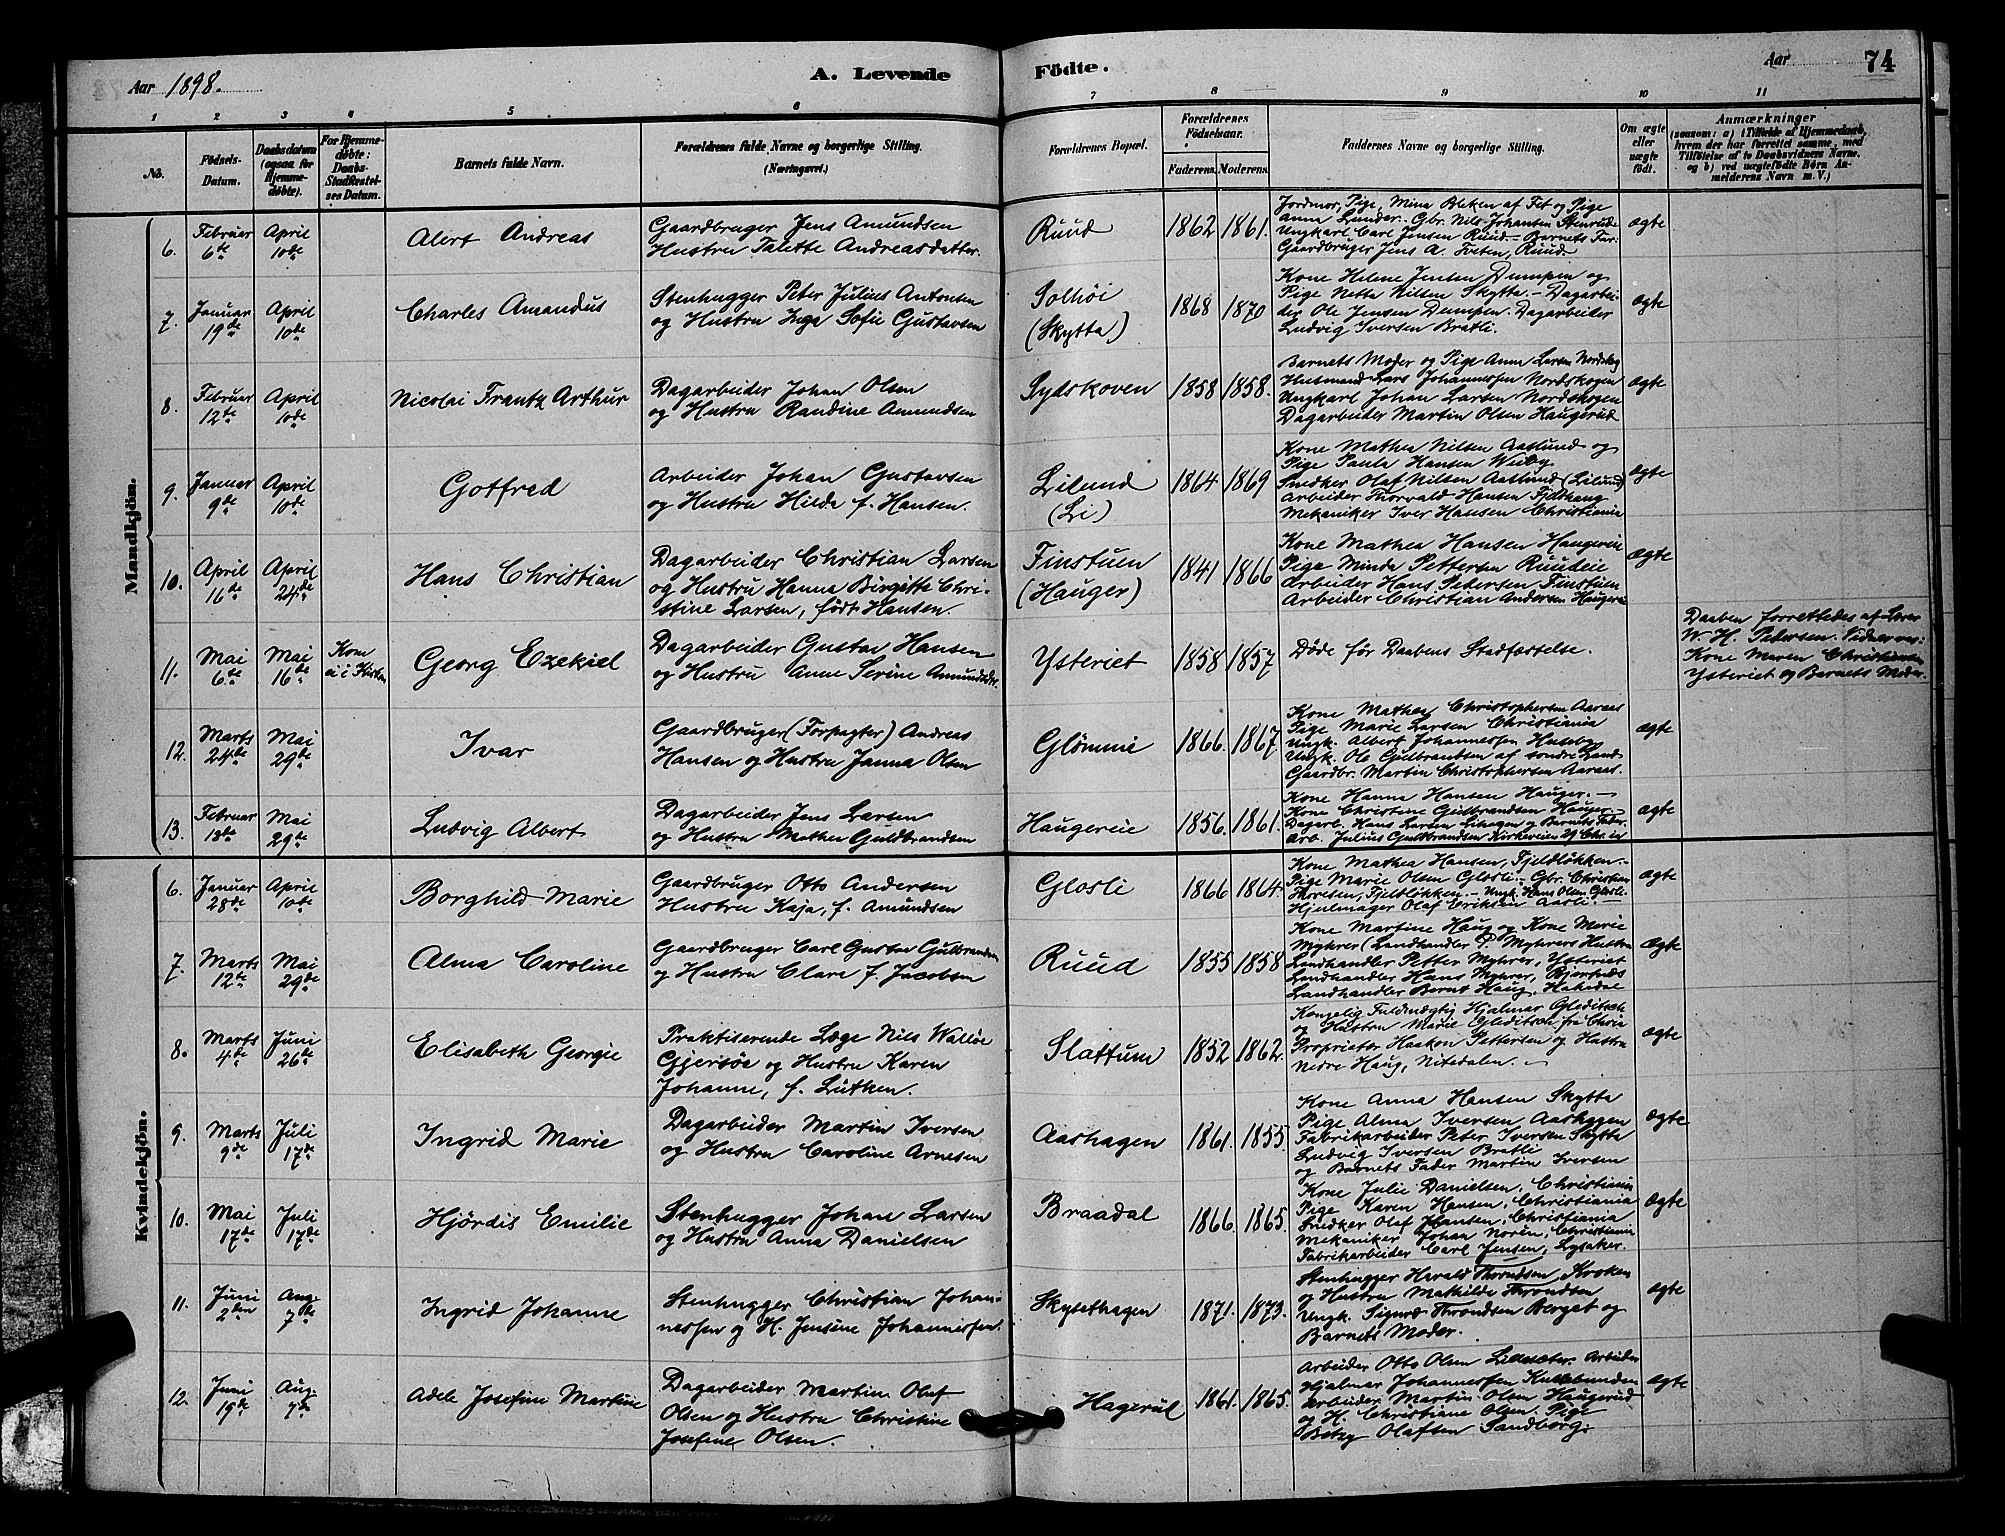 Aar 1898.
A. Levende Födte.
Aar
74
1 2 3 4 5 6 7 8 9 10 11
No.
Födsels-Datum.
Daabsdatum (ogsaa for Hjemme-döbte).
For Hjemme-döbte: Daabs-Stadfæstel-ses Datum.
Barnets fulde Navn.
Forældrenes fulde Navne og borgerlige Stilling.
(Næringsvei.)
Forældrenes Bopæl.
Forældrenes Födselsaar.
Faderens. Moderens.
Faddernes Navne og borgerlige Stilling.
Om ægte eller uægte födt.
Anmærkninger
(saasom: a) i Tilfælde af Hjemmedaab,
hvem der har forrettet samme, med
Tilföielse af to Daabsvidners Navne.
og b) ved uægtefödte Börn An-
melderens Navn m. V.)
Mandkjön.
6. Februar 6te April 10de Alert Andreas
Gaardbruger Jens Amundsen
Hustru Talette Andreasdatter.
Ruud 1862 1861.
Jordmor, Pige, Mina Bleken af Fet og Pige
Anna Lunder. Gbr. Nils Johansen Stenrud
Ungkarl Carl Jensen Ruud. – Barnets Far:
Gaardbruger Jens A. Tveten, Ruud.
ægte
7. Januar 19de April 10de Charles Amandus
Stenhugger Peter Julius Antonsen
og Hustru Inga Sofie Gustavsen
Solhöi (Skytta) 1868 1870
Kone Helene Jensen Dumpen og
Pige Netta Nilsen Skytta. – Dagarbei-
der Ole Jensen Dumpen. Dagarbeider
Ludvig Iversen Bratli.
ægte
8. Februar 12te April 10de Nicolai Frantz Arthur
Dagarbeider Johan Olsen
og Hustru Randine Amundsen
Sydskoven 1858 1858.
Barnets Moder og Pige Anna Larsen Nordskog
Husmand Lars Johannessen Nordskogen
Ungkarl Johan Larsen Nordskogen
Dagarbeider Martin Olsen Haugerud
ægte
9. Januar 9de April 10de Gotfred
Arbeider Johan Gustavsen
og Hustru Hilda f. Hansen.
Lilund (Li) 1864 1869
Kone Mathea Nilsen Aaslund og
Pige Paula Hansen Weiby
Snedker Olaf Nilsen Aaslund (Lilund)
Arbeider Thorvald Hansen Fjeldhaug
Mekaniker Iver Hansen Christiania
ægte
10. April 16de April 24de Hans Christian
Dagarbeider Christian Larsen
og Hustru Hanna Birgitte Chri-
stine Larsen, født Hansen.
Finstuen (Hauger) 1841 1866
Kone Mathea Hansen Haugereie
Pige Minda Pettersen Ruudeie
Arbeider Hans Pedersen Finstuen
Arbeider Christian Andersen Haugereie
ægte
11. Mai 6te Mai 16de Kom ei i Kirken Georg Ezekiel
Dagarbeider Gustav Hansen
og Hustru Anne Serine Amundsdt.
Ysteriet 1858 1857
Döde før Daabens Stadfæstelse.
Daaben forrettedes af Lærer
W. H. Pedersen. Vidner var:
Kone Maren Christiansen
Ysteriet og Barnets Moder.
12. Marts 24de Mai 29de Ivar
Gaardbruger (Forpagter) Andreas
Hansen og Hustru Janna Olsen
Glömmie 1866. 1867
Kone Mathea Christophersen Aaraas
Pige Marie Larsen Christiania
Ungk. Albert Johannessen Huseby
Ungk. Ole Gulbrandsen af söndre Land
Gaardbr. Martin Christophersen Aaraas.
ægte
13. Februar 13de Mai 29de Ludvig Albert
Dagarbeider Jens Larsen
og Hustru Mathea Guldbrandsen
Haugereie 1856. 1861.
Kone Hanna Hansen Hauger. –
Kone Christine Gulbrandsen Hauger. –
Dagarb. Hans Larsen og Barnets Fader
Arb. Julius Guldbrandsen Kirkeveien 29 Chr.ia
ægte
Kvindekjön.
6. Januar 28de April 10de Borghild Marie
Gaardbruger Otto Andersen
Hustru Kaja, f. Amundsen
Glosli 1866 1864.
Kone Mathea Hansen, Fjeldløkken. –
Pige Marie Olsen Glosli. – Gbr. Christian
Thoresen, Fjeldløkken. – Ungk. Hans Olsen Glosli –
Hjulmager Olaf Eriksen Aasli. –
ægte
7. Marts 12te Mai 29de Alma Caroline
Gaardbruger Carl Gustav Gulbrandsen
og Hustru Clara f. Jacobsen
Ruud 1855 1858
Kone Martine Haug og Kone Marie
Myhrer (Landhandler P. Myhrers Hustru
Landhandler Petter Myhrer, Ysteriet
Landhandler Hans Myhrer, Bjertnæs
Landhandler Bernt Haug, Hakedal
ægte
8. Marts 4de Juni 26de Elisabeth Georgie
Praktiserende Læge Nils Walløe
Gjersøe og Hustru Karen
Johanne, f. Lütken.
Slattum 1852 1862.
Kongelig Fuldmægtig Hjalmar Gleditsch
og Hustru Marie Gleditsch fra Chria
Proprietær Haakon Pettersen og Hustru
Nedre Haug, Nitedalen. –
ægte
9. Marts 9de Juli 17de Ingrid Marie
Dagarbeider Martin Iversen
og Hustru Caroline Arnesen
Aashagen 1861. 1855.
Kone Anna Hansen Skytta
Pige Alma Iversen Aashagen
Fabrikarbeider Peter Iversen Skytta
Ludvig Iversen Bratli
og Barnets Fader Martin Iversen
ægte
10. Mai 17de Juli 17de Hjördis Emilie
Stenhugger Johan Larsen
og Hustru Anna Danielsen
Braadal 1866. 1865.
Kone Julie Danielsen, Christiania
Pige Karen Hansen, Christiania
Snedker Olaf Hansen, Christiania
Mekaniker Johan Norén, Christiania
Fabrikarbeider Carl Jensen, Lysaker.
ægte
11. Juni 2den Aug. 7de Ingrid Johanne
Stenhugger Christian Johan-
nessen og H. Jensine Johannessen.
Skyttehagen 1871. 1873.
Stenhugger Harald Throndsen Kroken
og Hustru Mathilde Throndsen
Ungk. Sigurd Throndsen Berget og
Barnets Moder.
ægte
12. Juni 19de Aug. 7de Adele Josefine Martine
Dagarbeider Martin Oluf
Olsen og Hustru Christine
Josefine Olsen.
Hagerud 1861. 1865.
Arbeider Otto Olsen Lillesæter. Arbeider
Hjalmar Johannessen Kullebunden
Arbeider Martin Olsen Haugerud
og H. Christiane Olsen. Pige
Betzy Olafsen Sandborg.
ægte